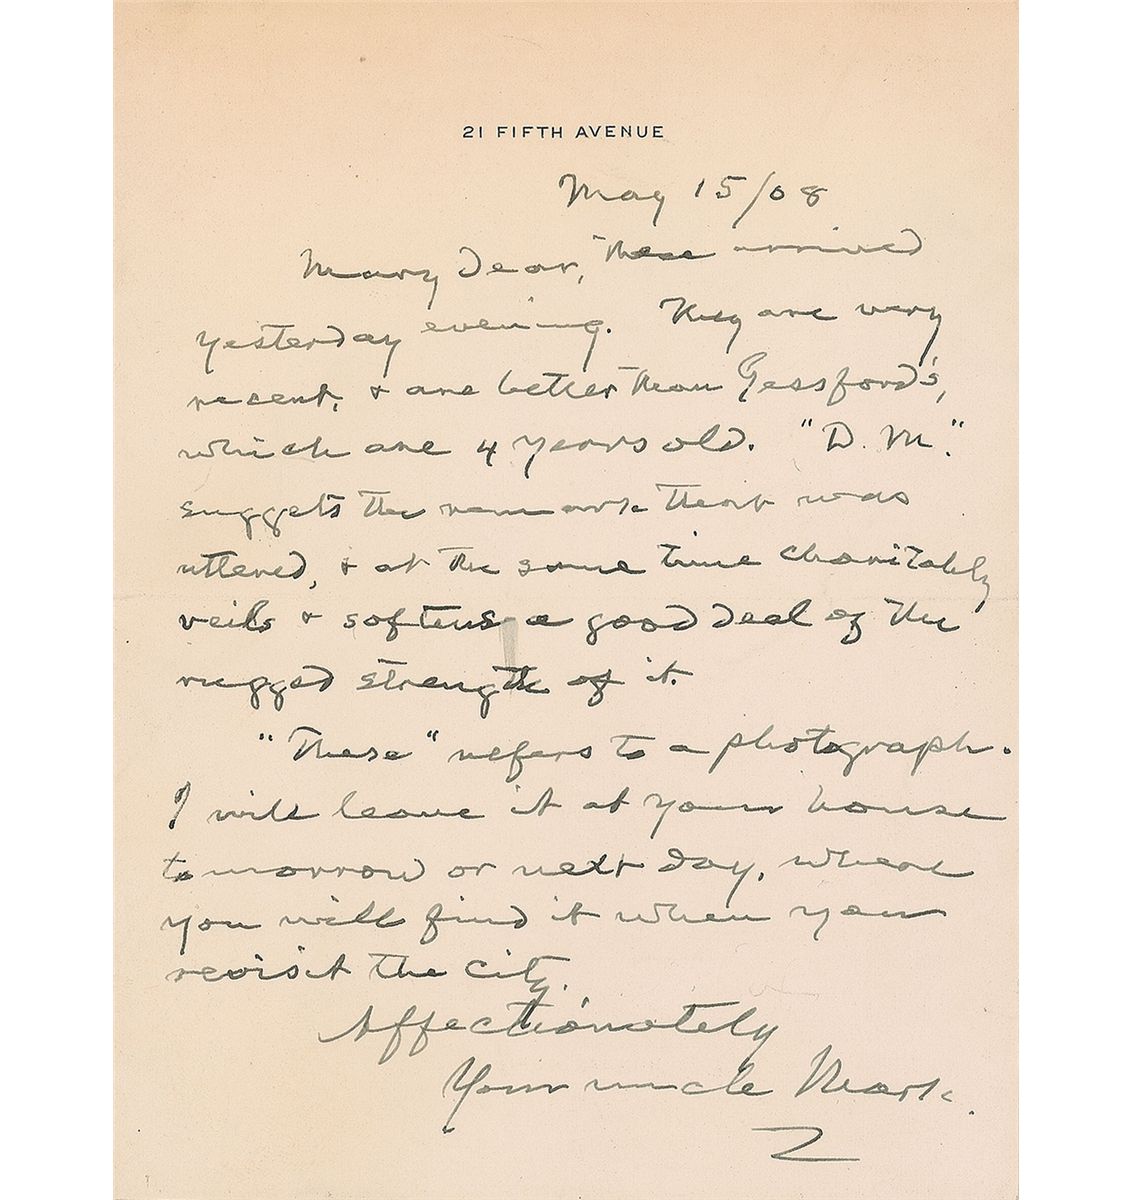 21 FIFTH AVENUE
May 15/08
Mary dear, these arrived
yesterday evening. They are very
recent, & are better than Gessford's,
which are 4 years old. "D. M."
suggets the remark that was
uttered, & at the same time charitably
veils & softens a good deal of the
rugged strength of it.
"These" refers to a photograph.
I will leave it at your house
tomorrow or next day, where
you will find it when you
revisit the city.
Affectionately
Your uncle Mark.